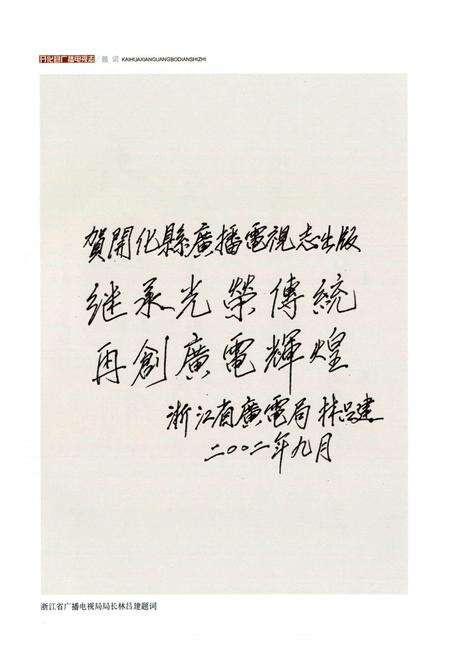 开化县广播电视志 题词 KAIHUAXIANGUANGBODIANSHIZHI
賀開化縣廣播電視志出版
继承光榮傳統
再創廣電輝煌
浙江省廣電局 林吕建
二〇〇二年九月
浙江省广播电视局局长林吕建题词